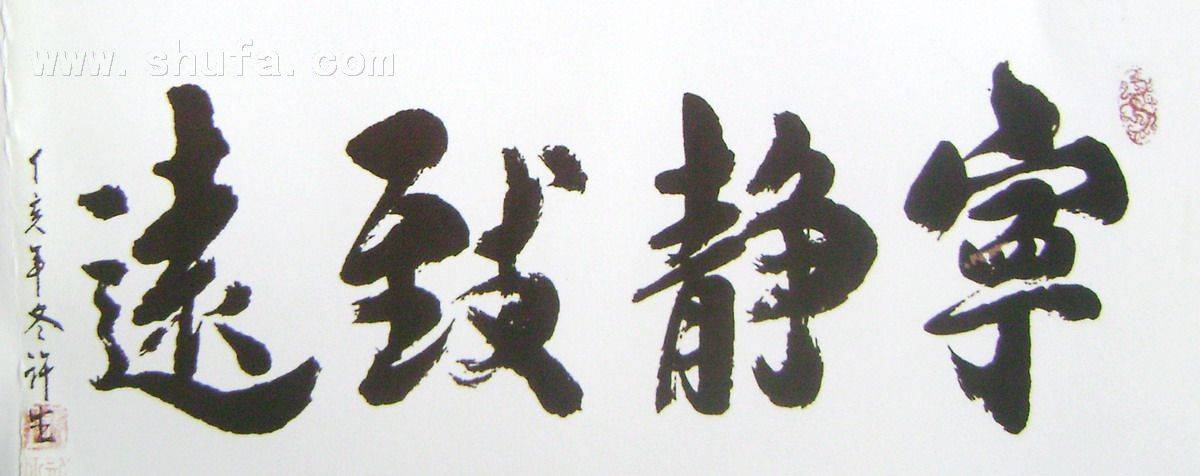 www.shufa.com
寧静致遠
丁亥年冬许生